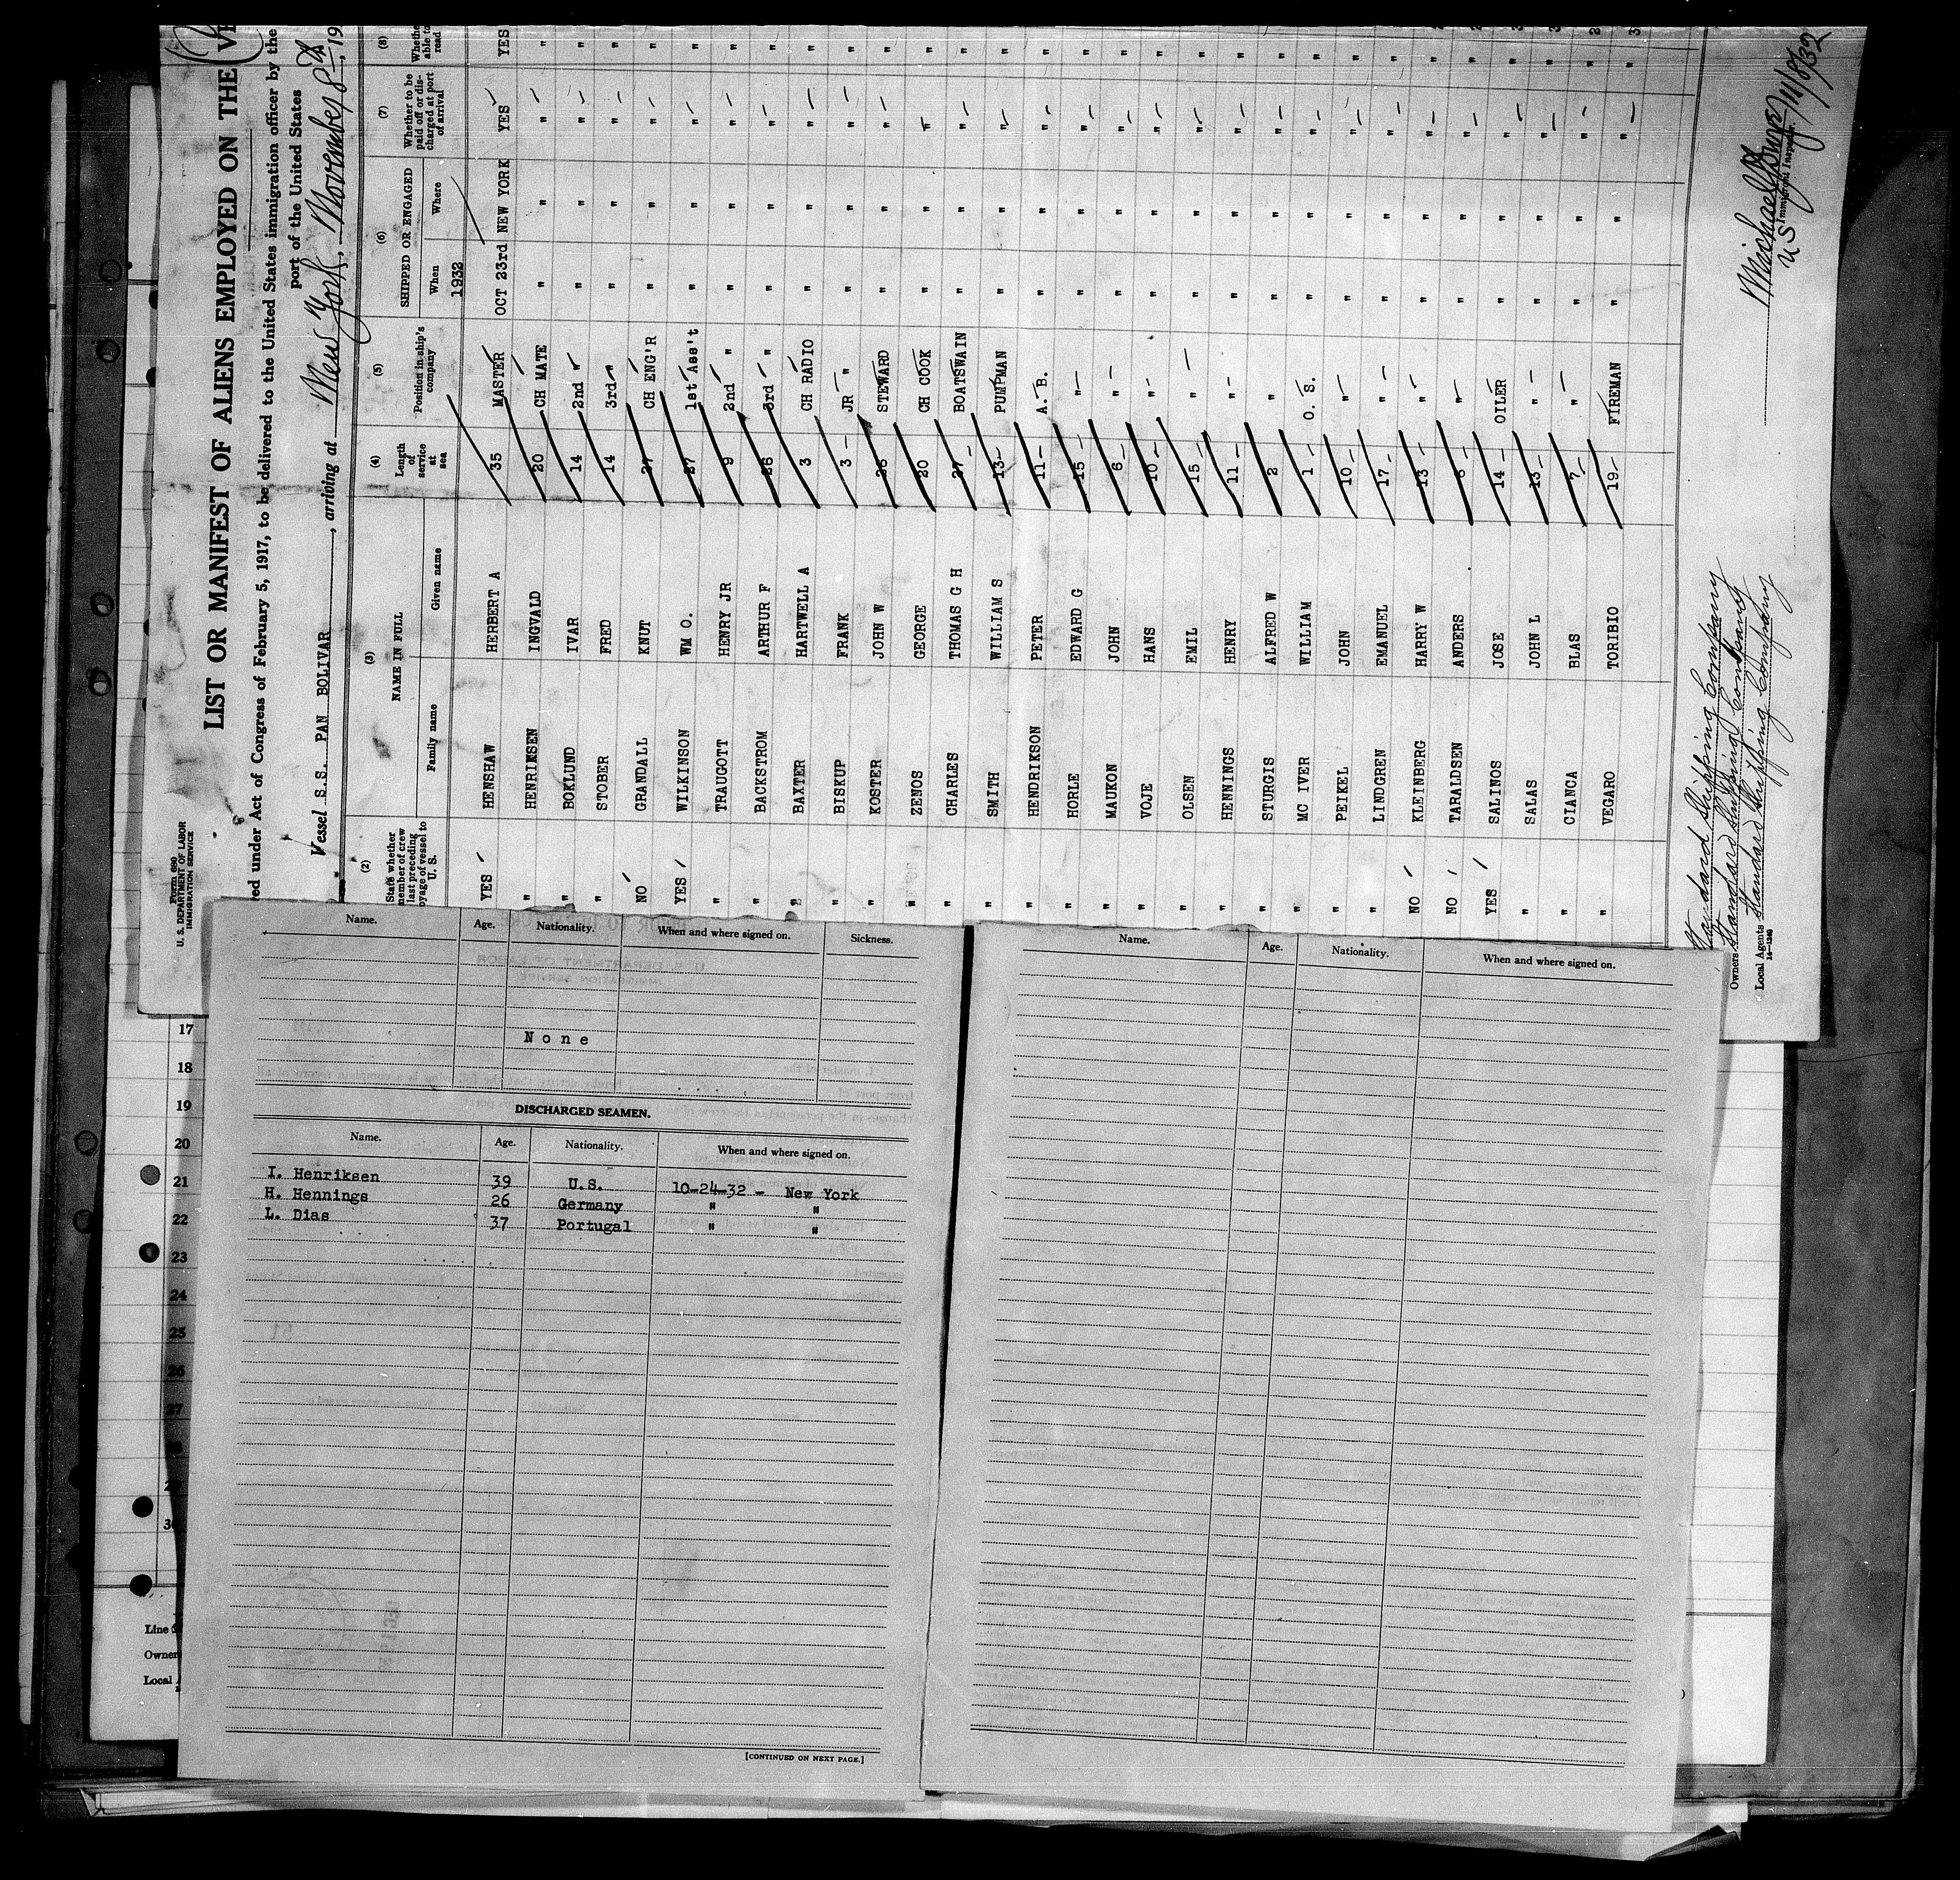 Form 680
U. S. DEPARTMENT OF LABOR
IMMIGRATION SERVICE
LIST OR MANIFEST OF ALIENS EMPLOYED ON THE
red under Act of Congress of February 5, 1917, to be delivered to the United States immigration officer by the
port of the United States
Vessel S.S. PAN BOLIVAR, arriving at New York, November 8th, 19
(2) (3) (4) (5) (6) (7) (8)
State whether member of crew last preceding voyage of vessel to U. S. NAME IN FULL Family name Given name Length of service at sea Position in ship's company SHIPPED OR ENGAGED When Where Whether to be paid off or discharged at port of arrival Whether able to read
1932
YES HENSHAW HERBERT A 35 MASTER OCT 23rd NEW YORK YES YES
" HENRIKSEN INGVALD 20 CH MATE " " " "
" BOKLUND IVAR 14 2nd " " " " "
" STOBER FRED 14 3rd " " " " "
NO GRANDALL KNUT 27 CH ENG'R " " " "
YES WILKINSON WM O. 27 1st Ass't " " " "
" TRAUGOTT HENRY JR 9 2nd " " " " "
" BACKSTROM ARTHUR F 26 3rd " " " " "
" BAXTER HARTWELL A 3 CH RADIO " " " "
" BISKUP FRANK 3 JR " " " " "
" KOSTER JOHN W 26 STEWARD " " " "
" ZENOS GEORGE 20 CH COOK " " " "
" CHARLES THOMAS G H 27 BOATSWAIN " " " "
" SMITH WILLIAM S 13 PUMPMAN " " " "
" HENDRIKSON PETER 11 A. B. " " " "
" HORLE EDWARD G 15 " " " " "
" MAUKON JOHN 6 " " " " "
" VOJE HANS 10 " " " " "
" OLSEN EMIL 15 " " " " "
" HENNINGS HENRY 11 " " " " "
" STURGIS ALFRED W 2 " " " " "
" MC IVER WILLIAM 1 O. S. " " " "
" PEIKEL JOHN 10 " " " " "
" LINDGREN EMANUEL 17 " " " " "
NO KLEINBERG HARRY W 13 " " " " "
NO TARALDSEN ANDERS 6 " " " " "
YES SALINOS JOSE 14 OILER " " " "
" SALAS JOHN L 13 " " " " "
" CIANCA BLAS 7 " " " " "
" VEGARO TORIBIO 19 FIREMAN " " " "
Standard Shipping Company
Owners Standard Shipping Company
Local Agents Standard Shipping Company
14-1240
Michael 11/8/32
U S Immigrant Inspector.
Name. Age. Nationality. When and where signed on. Sickness.
None
DISCHARGED SEAMEN.
Name. Age. Nationality. When and where signed on.
I. Henriksen 39 U.S. 10-24-32 - New York
H. Hennings 26 Germany " "
L. Dias 37 Portugal " "
[CONTINUED ON NEXT PAGE.]
Name. Age. Nationality. When and where signed on.
17
18
19
20
21
22
23
24
25
26
27
Line
Owner
Local